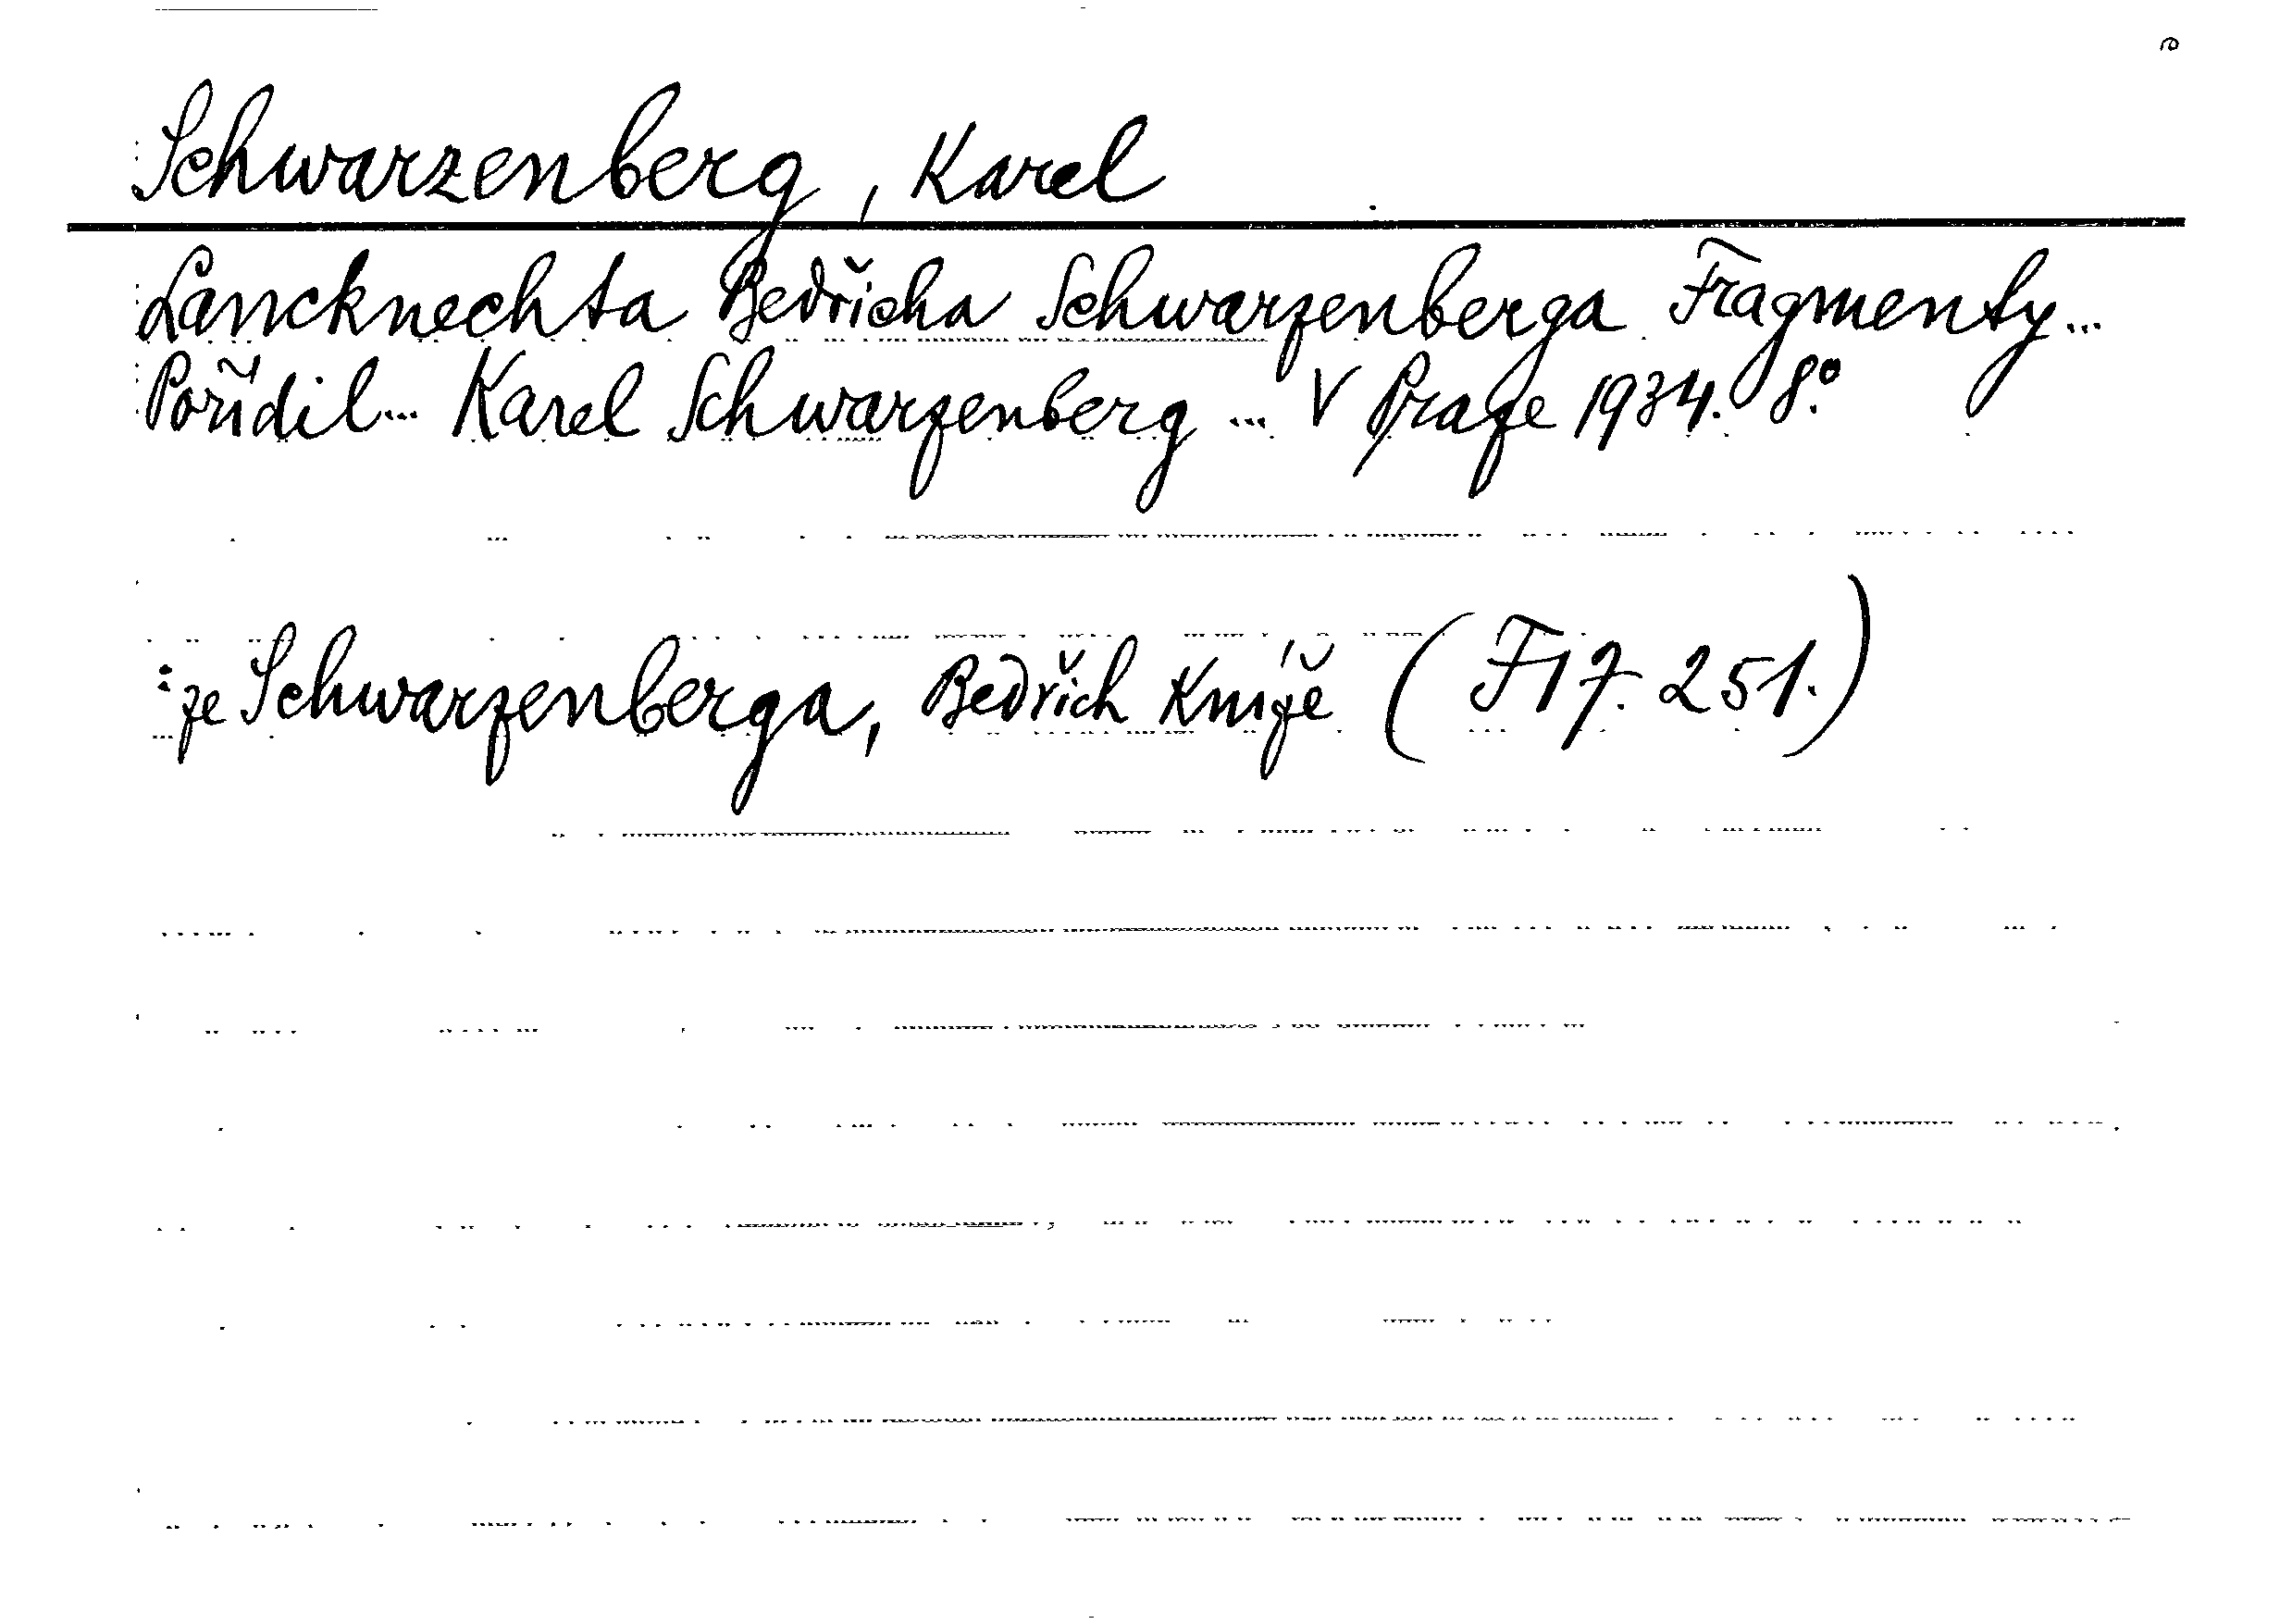 Schwarzenberg, Karel
Lancknechta Bedřicha Schwarzenberga Fragmenty...
Pořídil... Karel Schwarzenberg... V Praze 1934. 8.°
: ze Schwarzenberga, Bedřich Kníže (F 17. 251.)